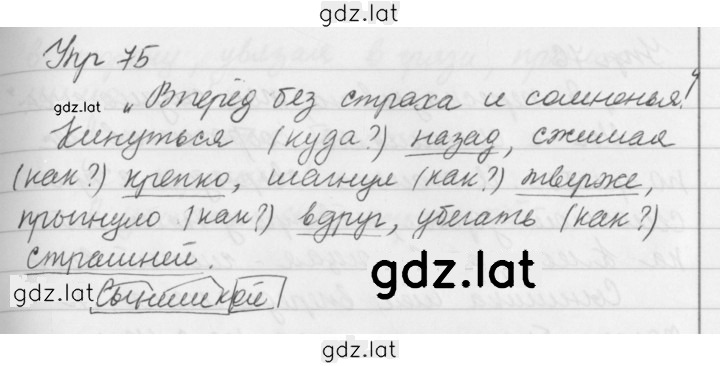 gdz.lat
Упр 75
gdz.lat
„Вперёд без страха и сомненья!“
Кинуться (куда?) назад, сжимая
(как?) крепко, шагнул (как?) тверже,
прыгнуло (как?) вдруг, убегать (как?)
страшней.
gdz.lat Сынишкой
gdz.lat
gdz.lat